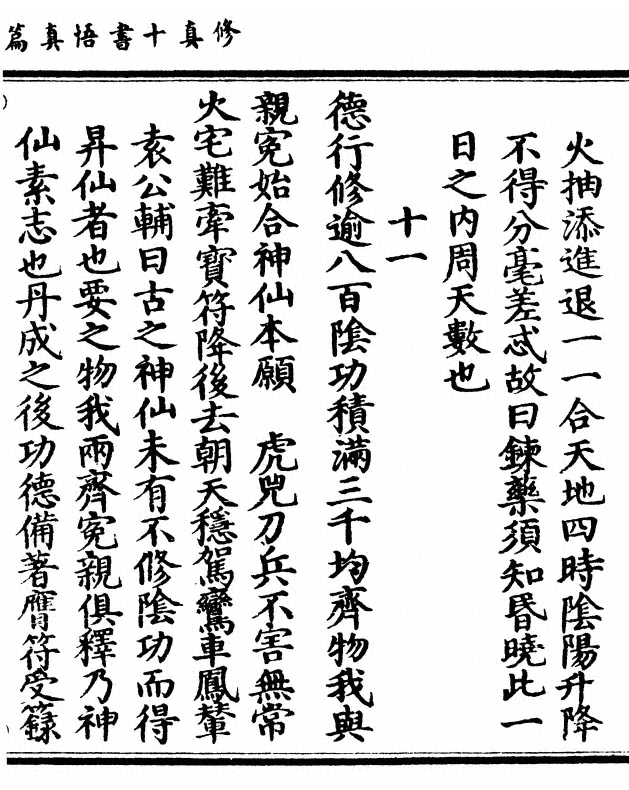 修真十書悟真篇
火抽添進退一一合天地四時陰陽升降
不得分毫差忒故曰鍊藥須知昏曉此一
日之内周天數也
十一
德行修逾八百陰功積滿三千均齊物我與
親寃始合神仙本願　虎兕刀兵不害無常
火宅難牽寶符降後去朝天穩駕鸞車鳳輦
袁公輔曰古之神仙未有不修陰功而得
昇仙者也要之物我兩齊寃親俱釋乃神
仙素志也丹成之後功德備著膺符受籙